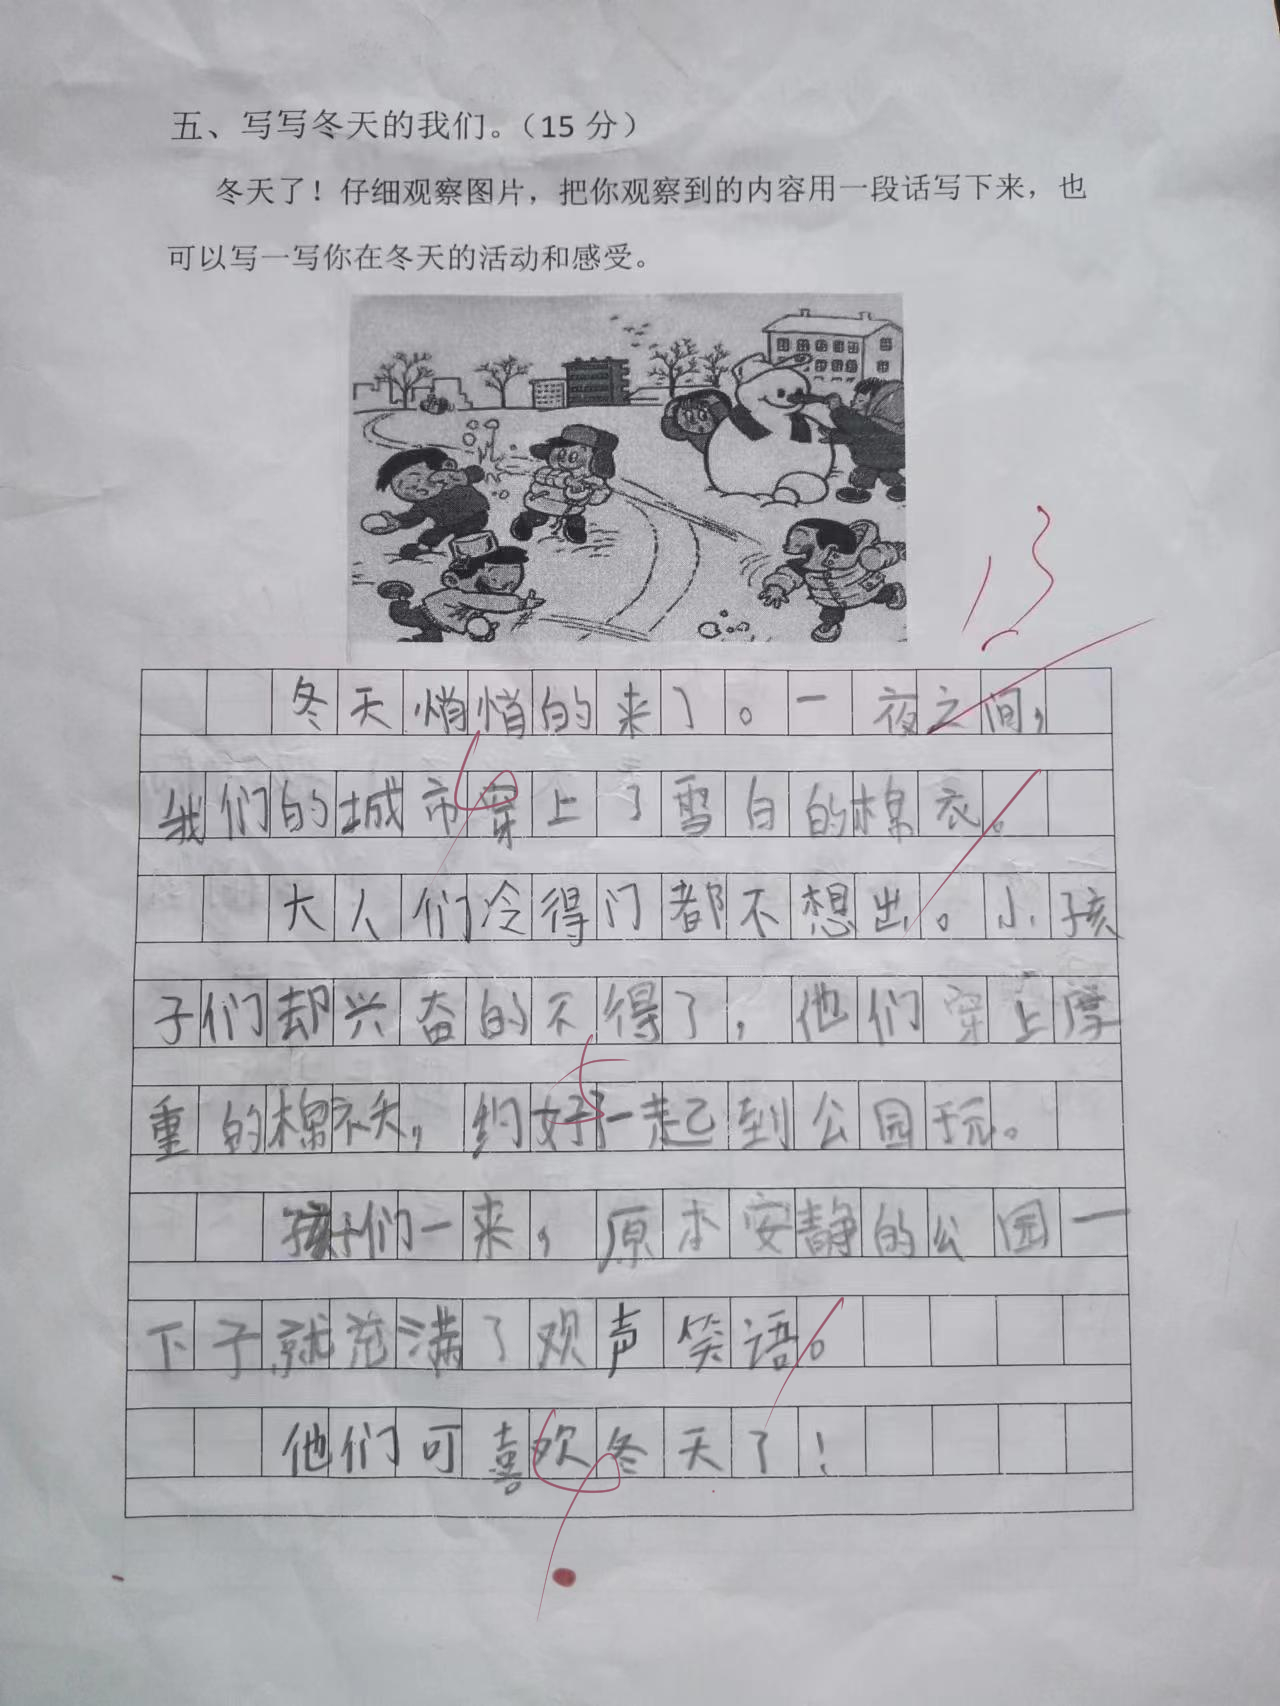 五、写写冬天的我们。（15 分）
冬天了！仔细观察图片，把你观察到的内容用一段话写下来，也
可以写一写你在冬天的活动和感受。
13
冬天悄悄的来了。一夜之间，
我们的城市穿上了雪白的棉衣。
大人们冷得门都不想出。小孩
子们却兴奋的不得了，他们穿上厚
重的棉袄，约好一起到公园玩。
孩子们一来，原本安静的公园一
下子就充满了欢声笑语。
他们可喜欢冬天了！